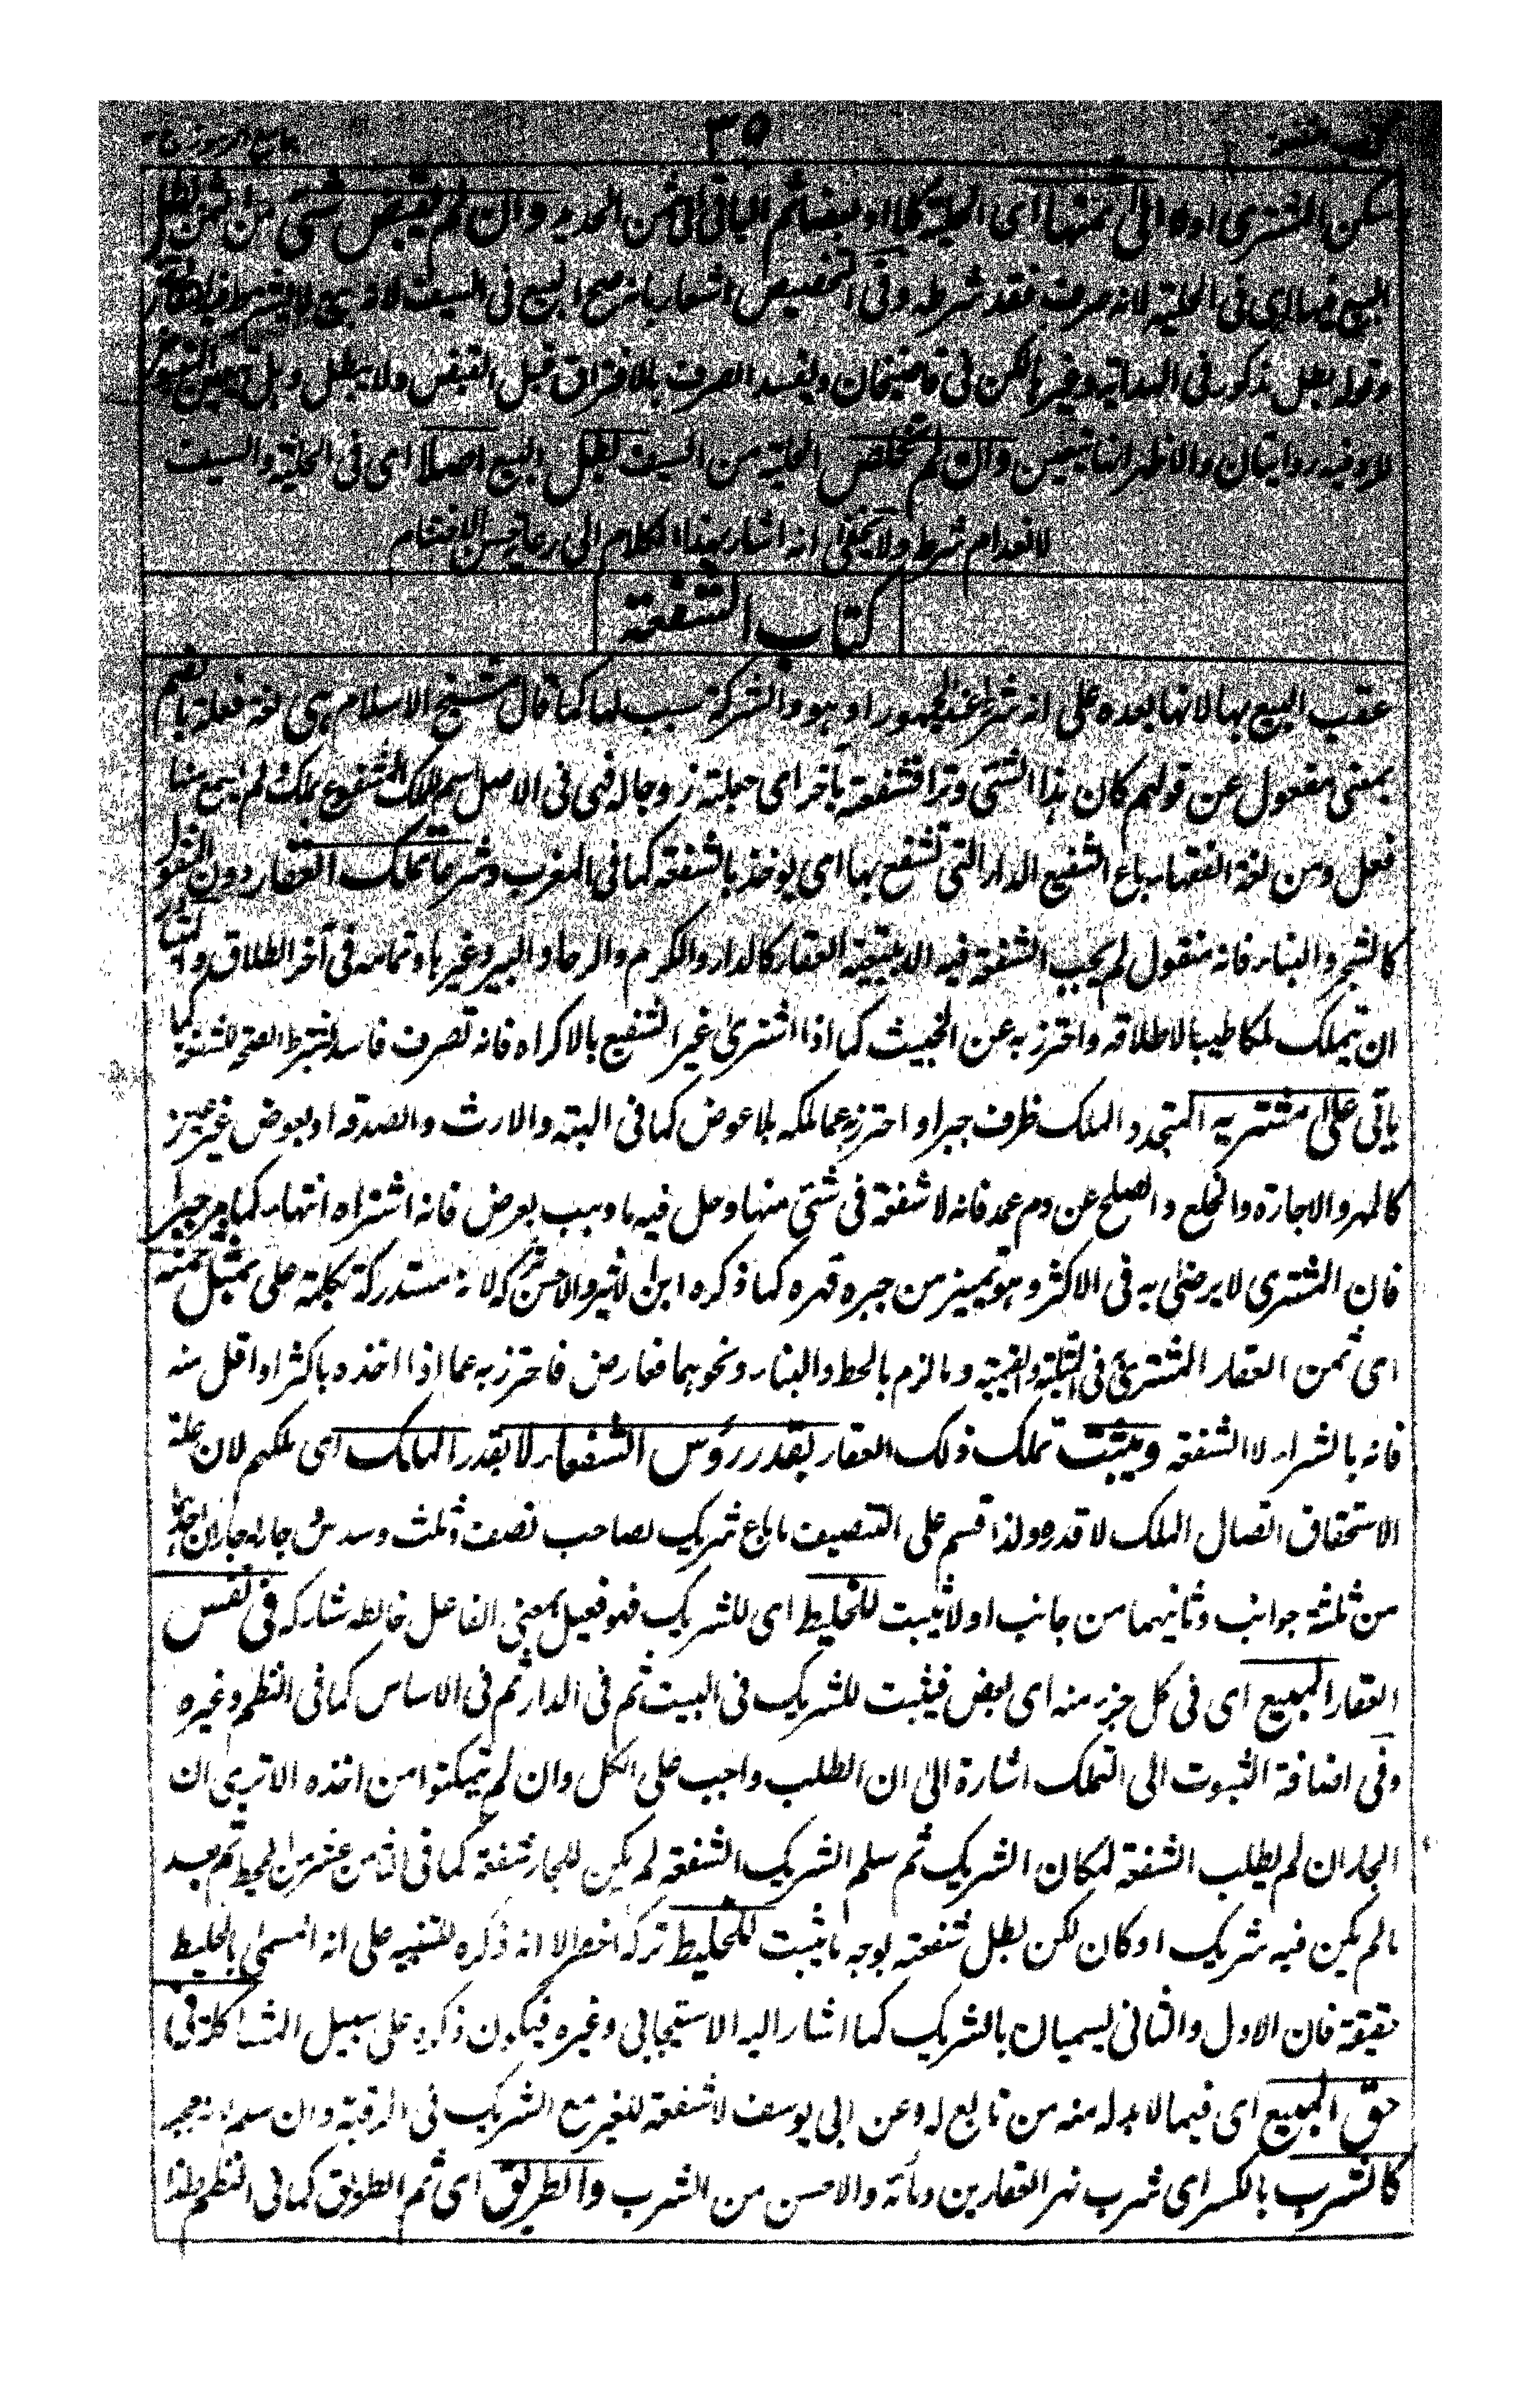 كتاب الشفعة
٣٥
جامع الرموز
سكن المشترى اداه الى ثمنها اى الحلية كلا او بعضا ثم الباقى الى ثمن الحديد وان لم يقبض شئ من الثمن بطل
البيع فيها اى فى الحلية لانه صرف فقد شرطه وفى التخصيص اشعار بانه صح البيع فى السيف لانه بيع لا يشترط فيه
وقوله بطل مذكور فى الهداية وغيرها لكن فى قاضيخان ويفسد الصرف بالافتراق قبل القبض ولا يبطل وهل تتعين النقود
لا وفيه روايتان والاظهر انها تتعين وان لم تتخلص الحلية من السيف بطل البيع اصلا اى فى الحلية والسيف
لانعدام شرطه ولا يخفى انه اشار بهذا الكلام الى رعاية حسن الاختتام
كتاب الشفعة
عقب البيع بها لانها بعده على انه شرط عند الجمهور او هو والشركة سبب لها كما قال شيخ الاسلام هى لغة فعلة بالضم
بمعنى مفعول عن قولهم كان هذا الشئ وترا فشفعته بآخر اى جعلته زوجا له فهى فى الاصل اسم للملك المشفوع بملك لم يسمع منها
فعل ومن لغة الفقهاء باع الشفيع الدار التى تشفع بها اى يوخذ بالشفعة كما فى المغرب وشرعا تملك العقار دون المنقول
كالشجر والبناء فانه منقول لم يجب الشفعة فيه الا بتبعية العقار كالدار والكرم والرحا والبير وغيرها وتمامه فى آخر الطلاق والمتبادر
ان يتملك ملكا طيبا لاطلاقه واحترز به عن الخبيث كما اذا اشترى غير الشفيع بالاكراه فانه تصرف فاسد يشترط الصحة للشفعة كما
ياتى على مشتريه المتجدد الملك ظرف جبرا واحترز به عما ملكه بلا عوض كما فى الهبة والارث والصدقة او بعوض غير عين
كالمهر والاجارة والخلع والصلح عن دم عمد فانه لا شفعة فى شئ منها ودخل فيه ما وهب بعوض فانه اشتراه انتهاء كما مر جبرا
فان المشترى لا يرضى به فى الاكثر وهو تمييز من جبره قهره كما ذكره ابن الاثير والاحسن تركه لانه مستدرك بكلمة على بمثل ثمنه
اى ثمن العقار المشترى فى المثلية والقيمية وما لزم بالحط والبناء ونحوهما فعارض فاحترز به عما اذا اخذه باكثر او اقل منه
فانه بالشراء لا الشفعة ويثبت تملك ذلك العقار بقدر رؤس الشفعاء لا بقدر الملك اى ملكهم لان علة
الاستحقاق اتصال الملك لا قدره ولذا قسم على التنصيف ما باع شريك لصاحب نصف وثلث وسدس وما له جاران احدهما
من ثلثة جوانب وثانيهما من جانب اولا يثبت للخليط اى للشريك فهو فعيل بمعنى الفاعل خالطه شاركه فى نفس
العقار المبيع اى فى كل جزء منه اى بعض فيثبت للشريك فى البيت ثم فى الدار ثم فى الاساس كما فى النظم وغيره
وفى اضافة الثبوت الى التملك اشارة الى ان الطلب واجب على الكل وان لم يتمكنوا من اخذه الا ترى ان
الجار ان لم يطلب الشفعة لمكان الشريك ثم سلم الشريك الشفعة لم يكن للجار شفعة كما فى الثامن عشر من المحيط ثم بعد
ما لم يكن فيه شريك او كان لكن بطل شفعته بوجه ما يثبت للخليط تركه اخصر الا انه ذكره للتنبيه على انه المسمى بالخليط
حقيقة فان الاول والثانى يسميان بالشريك كما اشار اليه الاسبيجابى وغيره فيكون ذكره على سبيل المشاكلة فى
حق المبيع اى فيما لا بد له منه من تابع له وعن ابى يوسف لا شفعة للغير مع الشريك فى الرقبة وان سلم
كالشرب بالكسر اى شرب نهر العقارين ومائه والاحسن من الشرب والطريق اى ثم الطريق كما فى النظم